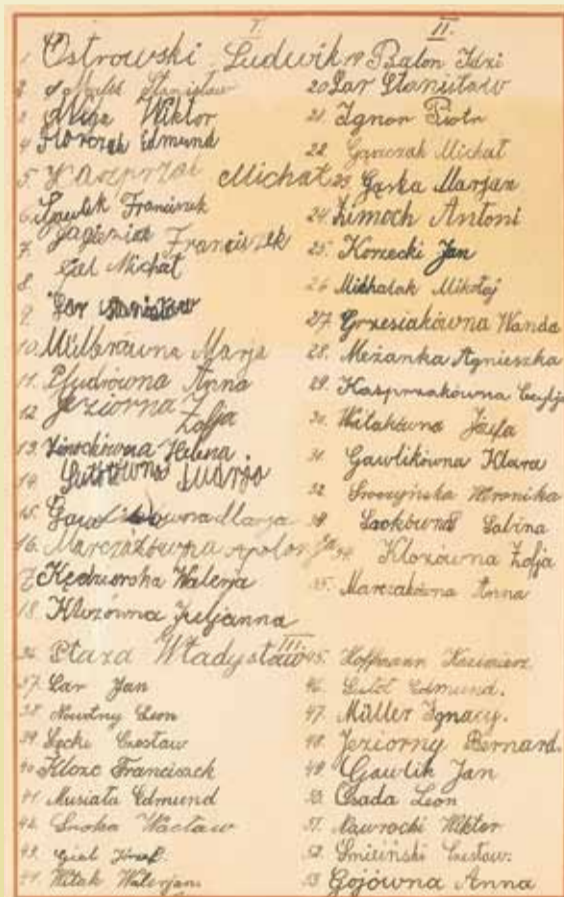 I.
1. Ostrowski Ludwik
2. Stanisław
3. Misa Wiktor
4. Florczak Edmund
5. Kasprzak Michał
6. Gawlik Franciszek
7. Jagieniak Franciszek
8. Gal Michał
9. Lar Stanisław
10. Marja
11. Pfudrówna Anna
12. Jeziorna Zofja
13. Helena
14. Marja
15. Marja
16. Marczakówna
17. Kędziorska Walerja
18. Klozówna Juljanna
II.
19. Balon Idzi
20. Lar Stanisław
21. Ignor Piotr
22. Garczak Michał
23. Gąska Marjan
24. Zimoch Antoni
25. Korzecki Jan
26. Michalak Mikołaj
27. Grzesiakówna Wanda
28. Meżanka Agnieszka
29. Kasprzakówna Cecylja
30. Witakówna Józefa
31. Gawlikówna Klara
32. Sroczyńska Weronika
33. Sabina
34. Klozówna Zofja
35. Marczakówna Anna
III.
36. Ptaza Władysław
37. Lar Jan
38. Nowotny Leon
39. Łęcki Czesław
40. Klozc Franciszek
41. Musiała Edmund
42. Sroka Wacław
43. Józef.
44. Witak Walerjan
45. Hoffmann Kazimierz
46. Edmund.
47. Müller Ignacy.
48. Jeziorny Bernard.
49. Gawlik Jan
50. Osada Leon
51. Nawrocki Wiktor
52. Czesław.
53. Gojówna Anna